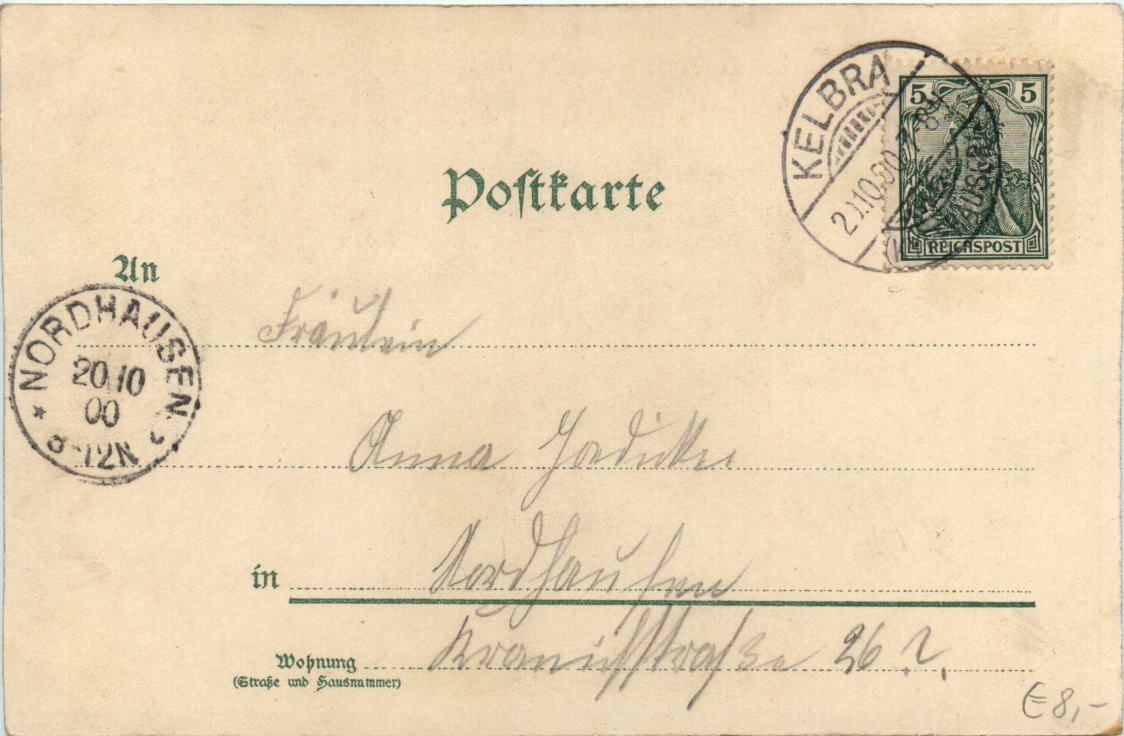 KELBRA
20.10.00
5 5
REICHSPOST
Postkarte
An
NORDHAUSEN
20/10
00
8-12N
Fräulein
Anna
in Nordhausen
Wohnung Kranichstraße 26
(Straße und Hausnummer)
€ 8,-